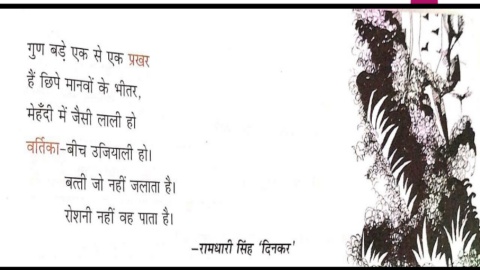 गुण बड़े एक से एक प्रखर
हैं छिपे मानवों के भीतर,
मेहँदी में जैसी लाली हो
वर्तिका-बीच उजियाली हो।
बत्ती जो नहीं जलाता है।
रोशनी नहीं वह पाता है।
–रामधारी सिंह 'दिनकर'